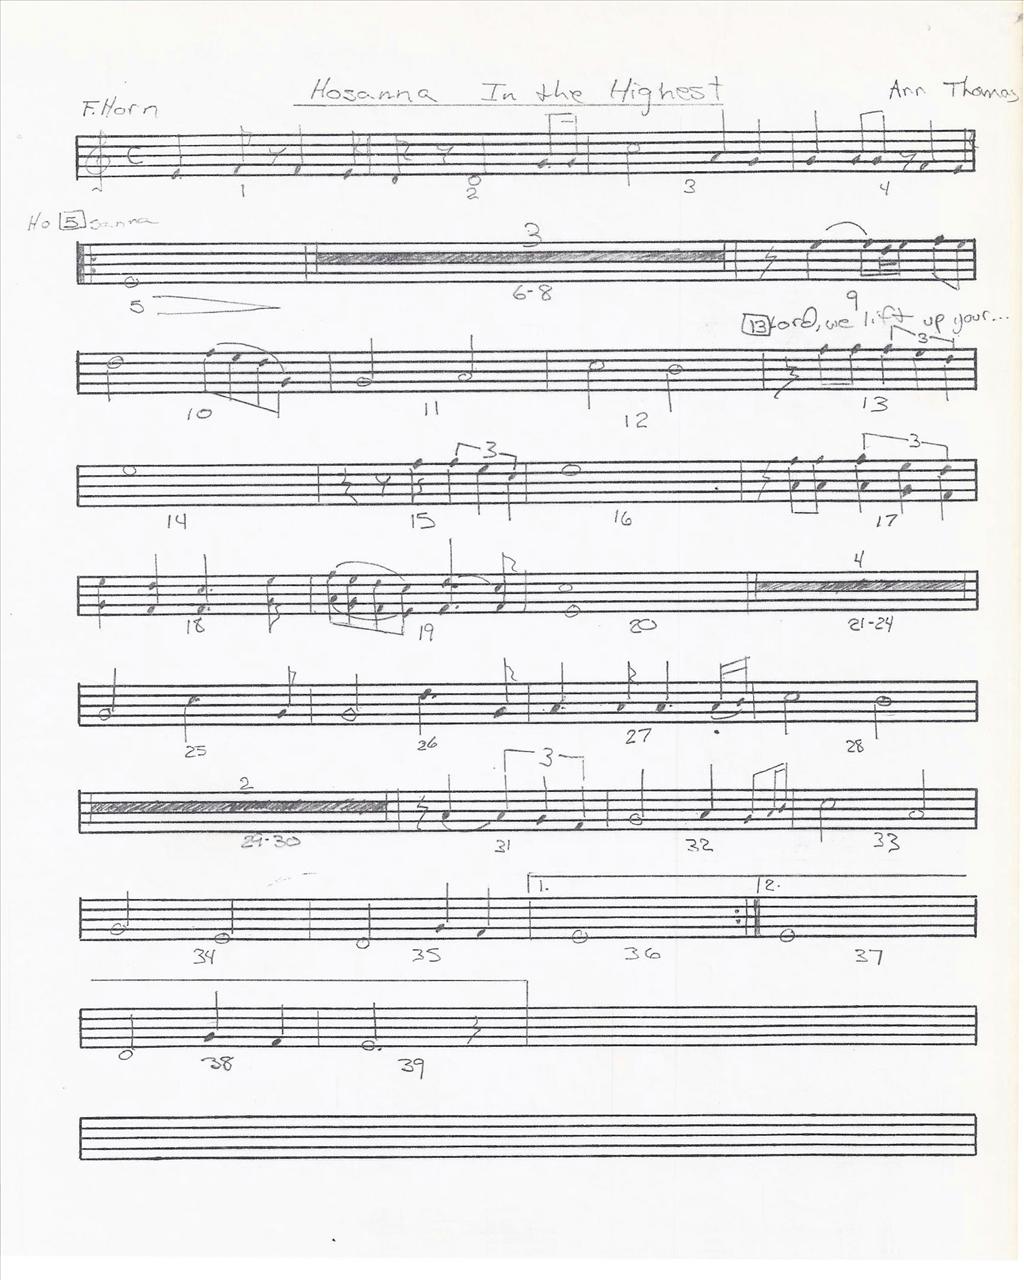 Hosanna In the Highest
F. Horn
Arr Thomas
1 2 3 4
Ho 5 sanna
3
5 6-8 9
13 Lord, we lift up your...
3
10 11 12 13
3 3
14 15 16 17
4
18 19 20 21-24
25 26 27 28
2 3
29-30 31 32 33
1. 2.
34 35 36 37
38 39